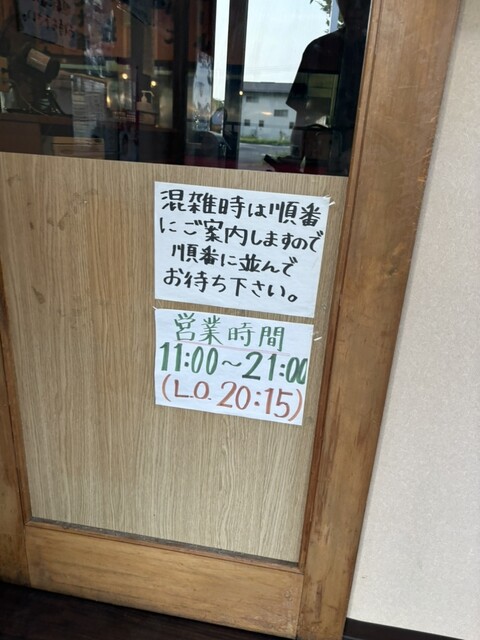 混雑時は順番
にご案内しますので
順番に並んで
お待ち下さい。
営業時間
11:00～21:00
(L.O. 20:15)